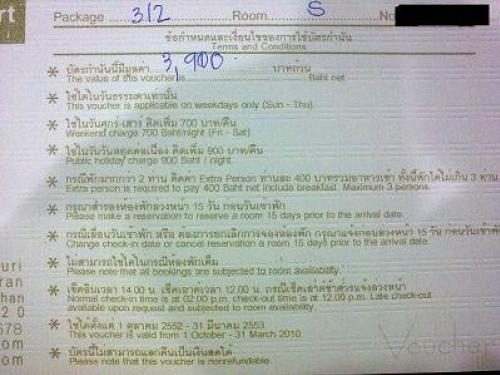 Package 3/2 Room S No
ข้อกำหนดและเงื่อนไขของการใช้บัตรกำนัน
Terms and Conditions
* บัตรกำนันนี้มีมูลค่า 3,900 บาทถ้วน
The value of this voucher is Baht net
* ใช้ได้ในวันธรรมดาเท่านั้น
This voucher is applicable on weekdays only (Sun - Thu).
* ใช้ในวันศุกร์-เสาร์ คิดเพิ่ม 700 บาท/คืน
Weekend charge 700 Baht/night (Fri - Sat)
* ใช้ในวันหยุดต่อเนื่อง คิดเพิ่ม 900 บาท/คืน
Public holiday charge 900 Baht / night.
* กรณีพักมากกว่า 2 ท่าน คิดค่า Extra Person ท่านละ 400 บาทรวมอาหารเช้า ทั้งนี้พักได้ไม่เกิน 3
Extra person is required to pay 400 Baht net include breakfast. Maximum 3 persons.
* กรุณาสำรองห้องพักล่วงหน้า 15 วัน ก่อนวันเข้าพัก
Please make a reservation to reserve a room 15 days prior to the arrival date.
* กรณีเลื่อนวันเข้าพัก หรือ ต้องการยกเลิกการจองห้องพัก กรุณาแจ้งก่อนล่วงหน้า 15 วัน ก่อนวันเข้าพัก
Change check-in date or cancel reservation a room 15 days prior to the arrival date.
* ไม่สามารถใช้ได้ในกรณีห้องพักเต็ม
Please note that all bookings are subject to room availability.
* เช็คอินเวลา 14.00 น. เช็คเอาต์เวลา 12.00 น. กรณีเช็คเอาต์ช้าควรแจ้งล่วงหน้า
Normal check-in time is at 02.00 p.m. check-out time is at 12.00 p.m. Late check-out
available upon request and subjected to room availability
* ใช้ได้ตั้งแต่ 1 ตุลาคม 2552 - 31 มีนาคม 2553
This voucher is valid from 1 October - 31 March 2010
* บัตรนี้ไม่สามารถแลกคืนเป็นเงินสดได้
Please note that this voucher is nonrefundable.
Voucher
rt
uri
ran
han
20
678
om
om